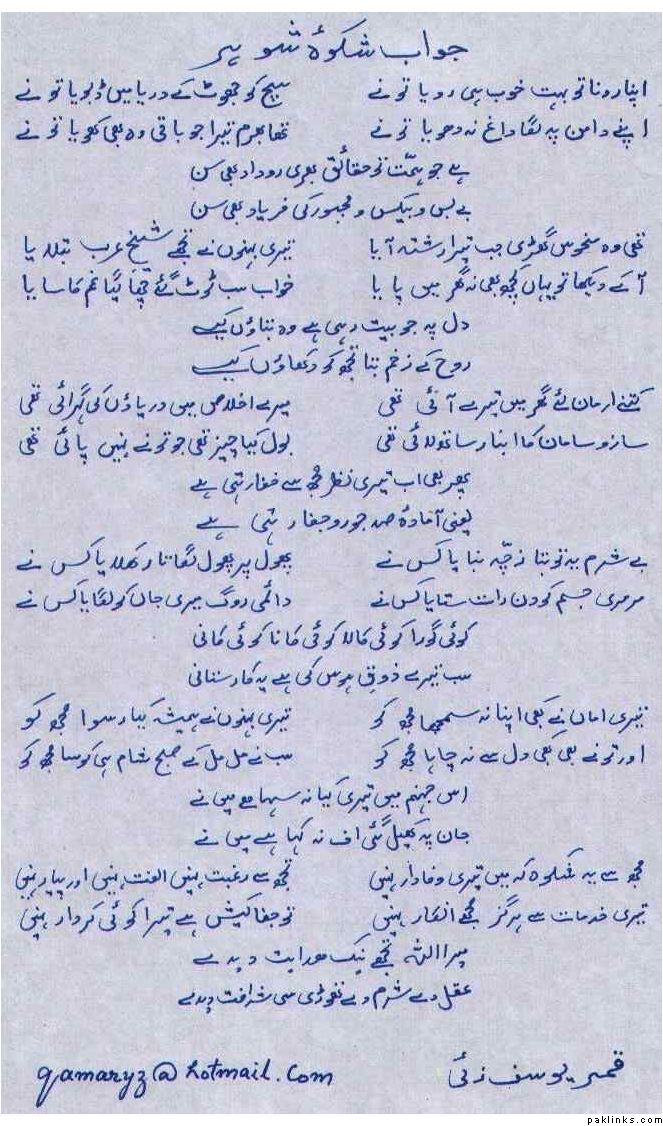 جواب شکوۂ شوہر
اپنا رونا تو بہت خوب ہی رویا تو نے سچ کو جھوٹ کے دریا میں ڈبویا تو نے
اپنے دامن پہ لگا داغ نہ دھویا تو نے تھا بھرم تیرا جو باقی وہ بھی کھویا تو نے
ہے جو ہمّت تو حقائق بھری روداد بھی سن
بے بس و بیکس و مجبور کی فریاد بھی سن
تھی وہ منحوس گھڑی جب تیرا رشتہ آیا تیری بہنوں نے تجھے شیخِ عرب بتلایا
آ کے دیکھا تو یہاں کچھ بھی نہ گھر میں پایا خواب سب ٹوٹ گئے چھا گیا غم کا سایا
دل پہ جو بیت رہی ہے وہ بتاؤں کیسے
روح کے زخم بتا تجھ کو دکھاؤں کیسے
کتنے ارمان لئے گھر میں تیرے آئی تھی میرے اخلاص میں دریاؤں کی گہرائی تھی
ساز و سامان کا انبار ساتھ لائی تھی بول کیا چیز تھی جو تو نے نہیں پائی تھی
پھر بھی اب تیری نظر مجھ سے خفا رہتی ہے
یعنی آمادۂ صد جور و جفا رہتی ہے
بے شرم یہ تو بتا زچّہ بنایا کس نے پھول پر پھول لگاتار کھلایا کس نے
مرمری جسم کو دن رات ستایا کس نے دائمی روگ میری جاں کو لگایا کس نے
کوئی گورا کوئی کالا کوئی کانا کوئی کانی
سب تیرے ذوقِ ہوس کی ہے یہ کارستانی
تیری اماں نے کبھی اپنا نہ سمجھا مجھ کو تیری بہنوں نے ہمیشہ کیا رسوا مجھ کو
اور تو نے بھی کبھی دل سے نہ چاہا مجھ کو سب نے مل مل کے صبح شام ہی کوسا مجھ کو
اس جہنم میں تیری کیا نہ سہا ہے میں نے
جان پہ کھیل گئی اف نہ کہا ہے میں نے
مجھ سے یہ شکوہ کہ میں تیری وفادار نہیں تجھ سے رغبت نہیں الفت نہیں اور پیار نہیں
تیری خدمات سے ہرگز مجھے انکار نہیں تو جفا کیش ہے تیرا کوئی کردار نہیں
میرا اللہ تجھے نیک ہدایت دیدے
عقل دے شرم دے تھوڑی سی شرافت دیدے
قمر یوسف زئی qamaryz@hotmail.com
paklinks.com